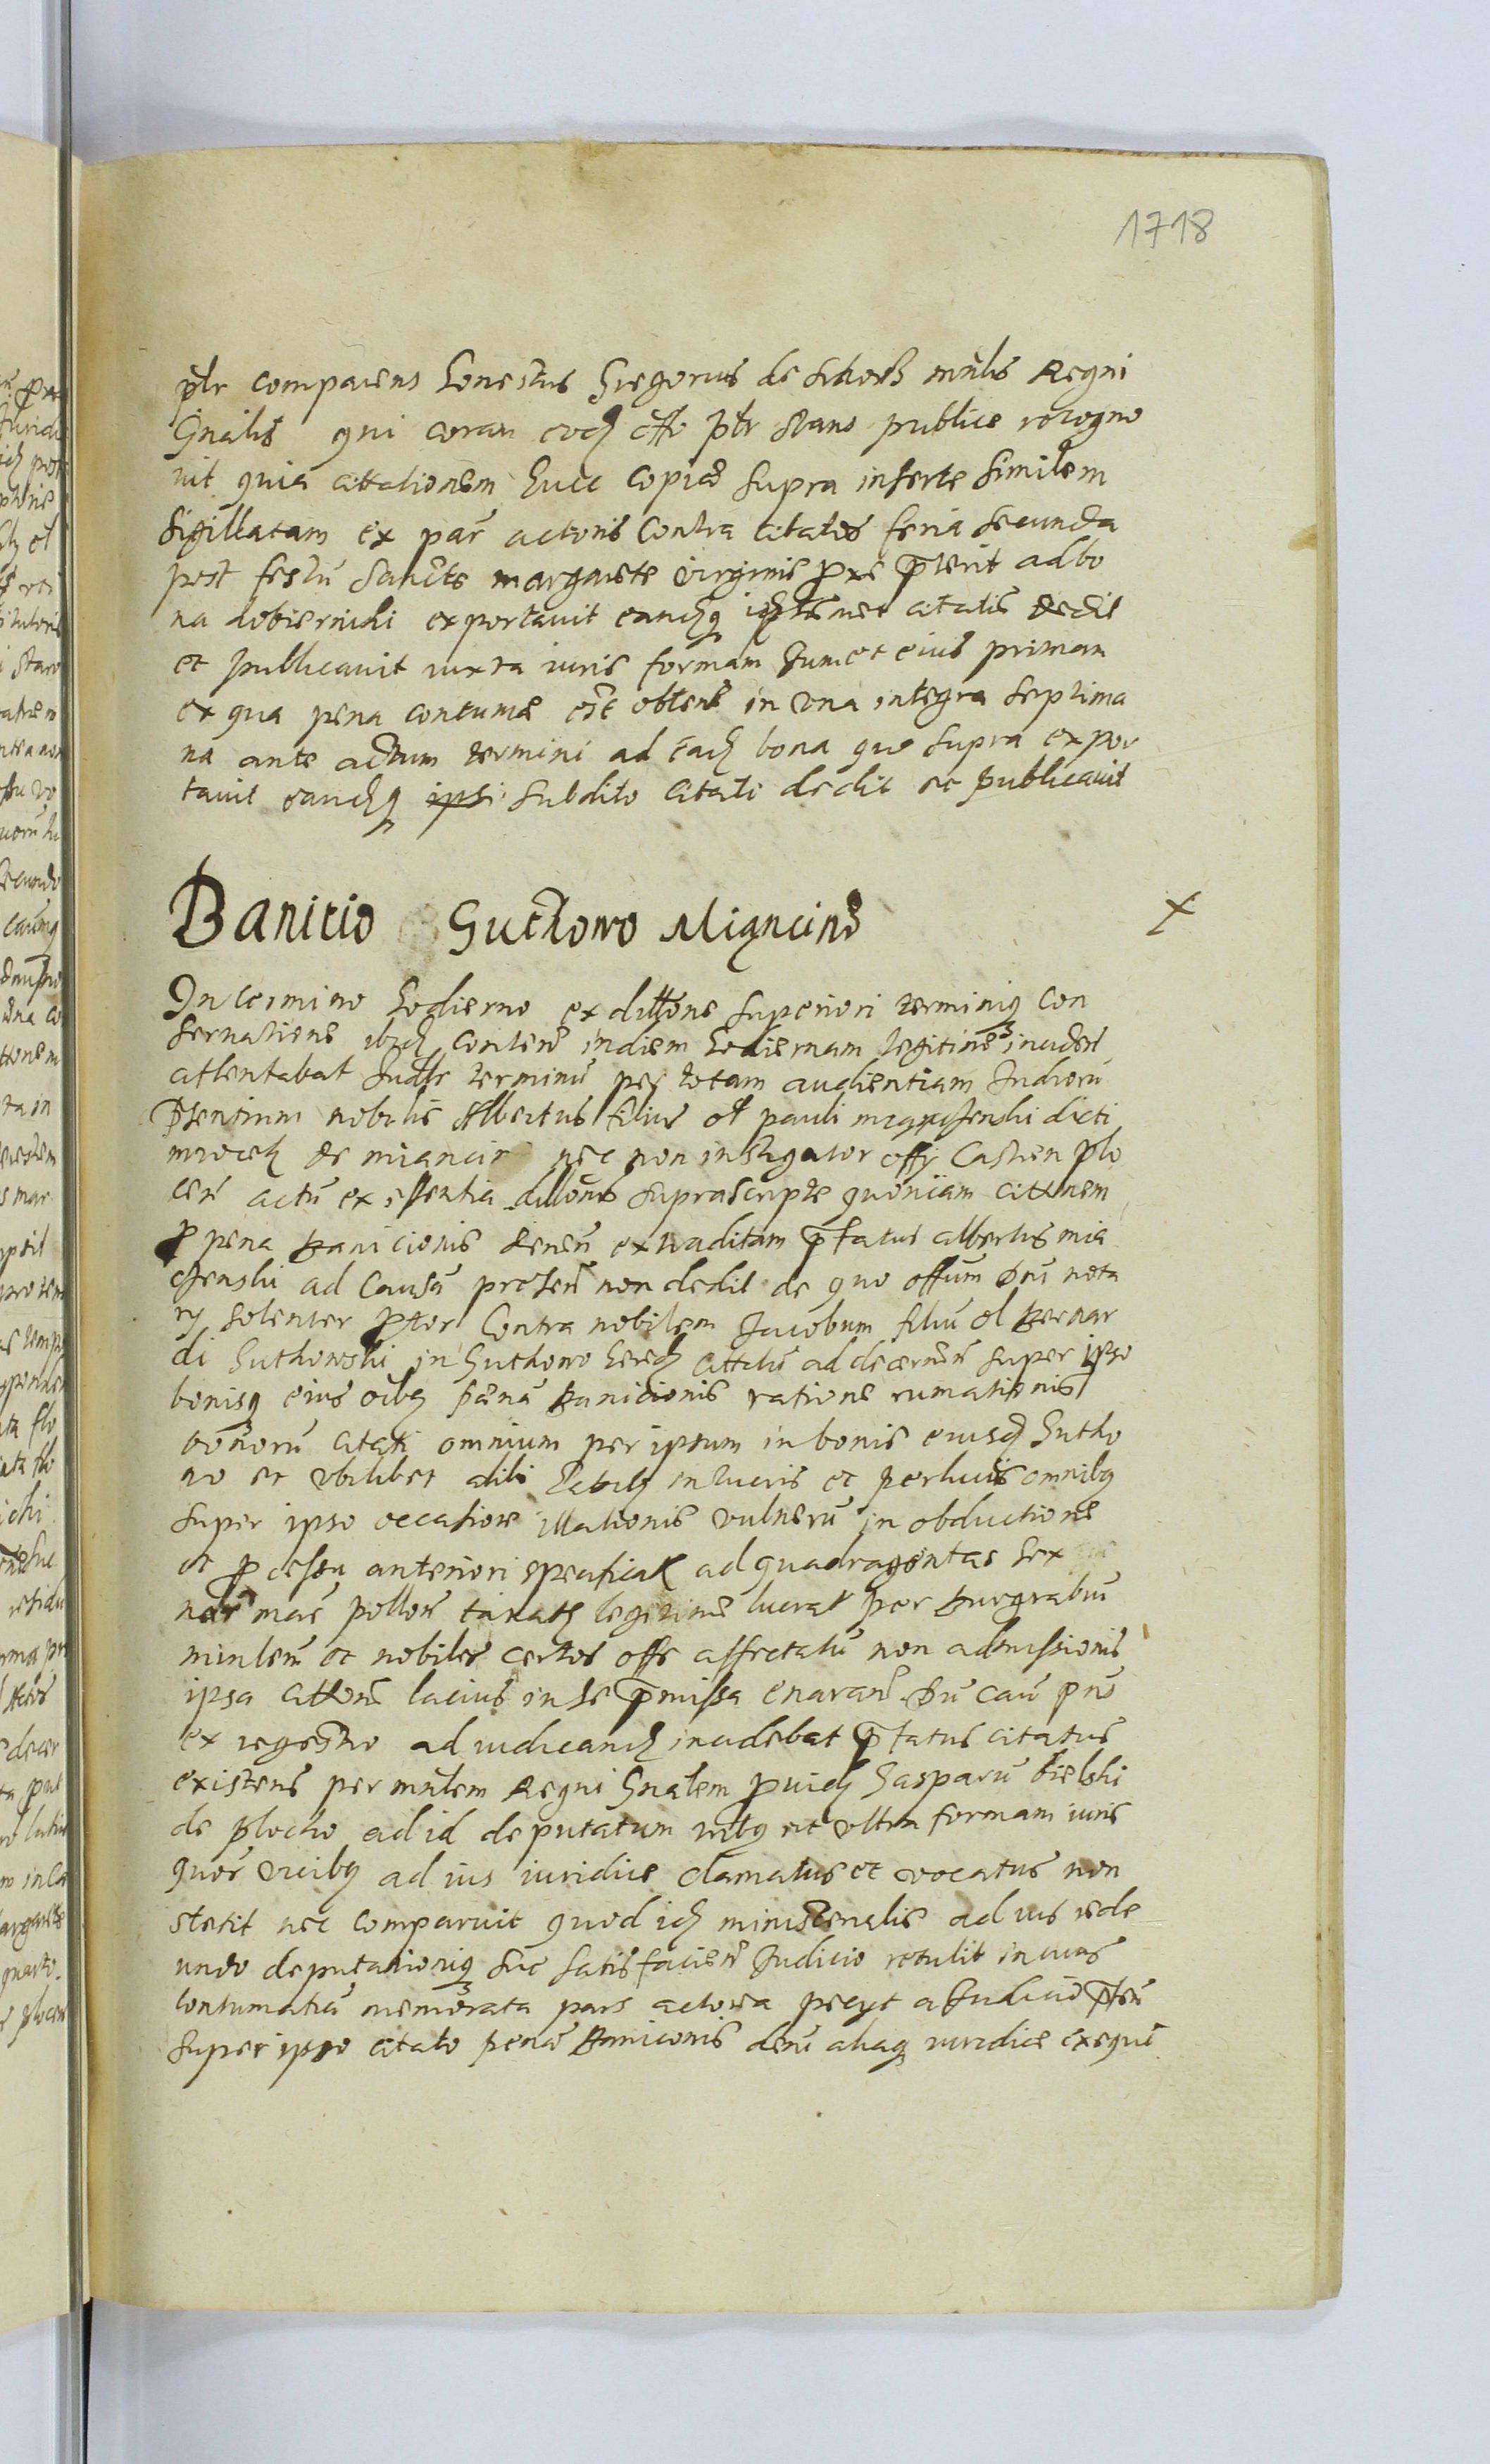 1718
ptr comparens honestus Gregorius de mnlis Regni
Gnalis qui coram eodz offo ptr stans publice recogno
uit quia cittationem huic copiae supra inserte similem
sigillatam ex par actoris contra citatos feria secunda
post festu sancte margarete virginis pxe pterit ad bo
na dobiernicki exportauit eandzq citatis dedit
et publicauit iuxta iuris formam tum et eius primam
ex qua pena contuma est obtent in vna integra septima
na ante actum termini ad eadz bona que supra expor
tauit eandzq ipsi subdito citati dedit et publicauit
Banitio Guthowo Miąncino
In termino hodierno ex dilttone superiori terminiq con
seruatione ibidz content in diem hodiernam legitime incident
attentabat Judtr terminu per totam audientiam Judicioru
psentium nobilis Albertus filius ol pauli dicti
de miancin nec non instigator offy Castren plo
cen actu ex essentia dilltonis suprascripte quoniam cittonem
p pena banicionis extraditam pfatus albertus mia
ad causa presen non dedit de quo offum pns nota
ry solenter ptor Contra nobilem Jacobum filiu ol Bernar
di Guthowski in Guthowo heredz cittatu ad decernen super ipso
bonisq eius oibq pena banicionis ratione rumationis
bonoru citati omnium per ipsum in bonis eiusd Gutho
wo et vbilibet alibi habitz in lucris et perlucris omnibq
super ipso occasione illationis vulneru in obductione
et pcessu anteriori specificat ad quadragentas sex
nar mar pollon taxatz legitime lucrat per burgrabiu
minlem et nobiles certos offo affectatu non admissionis
ipsa cittone lacius in se pmissa enaran Du cau pns
ex regestro ad iudicandz incidebat pfatus citatus
existens per mnlem Regni Gnalem puidz Gasparu bielski
de plocko ad id deputatum tribq et vltra formam iuris
quor vicibq ad ius iuridice clamatus et vocatus non
stetit nec comparuit quod idz ministerialis ad ius rede
undo deputationiq sue satisfacien Judicio retulit in cuius
contumatia memorata pars actorea pecyt a Judicio pten
super ipso citato pena banicionis decerni aliaq iuridice exequi